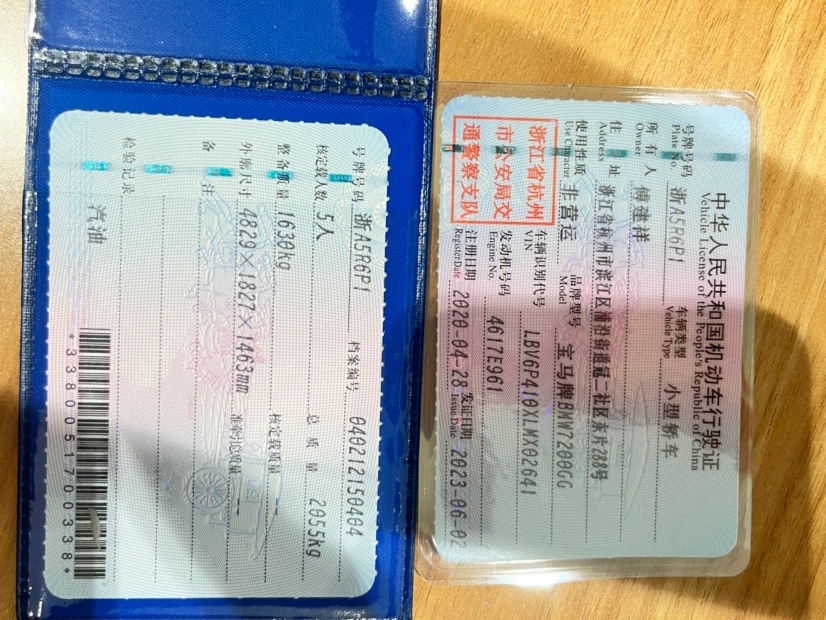 中华人民共和国机动车行驶证
Vehicle License of the People's Republic of China
号牌号码 浙A5R6P1 车辆类型 小型轿车
Plate No. Vehicle Type
所有人 傅建祥
Owner
住址 浙江省杭州市滨江区浦沿街道冠二社区东片288号
Address
使用性质 非营运 品牌型号 宝马牌BMW7200GG
Use Character Model
浙江省杭州
市公安局交
通警察支队
车辆识别代号 LBV6P410XLMX02641
VIN
发动机号码 4617E961
Engine No.
注册日期 2020-04-28 发证日期 2023-06-02
Register Date Issue Date
号牌号码 浙A5R6P1 档案编号 040212150404
核定载人数 5人 总质量 2055kg
整备质量 1630kg 核定载质量 --
外廓尺寸 4829×1827×1463mm 准牵引总质量 --
备注
检验记录
汽油
*3380051700338*